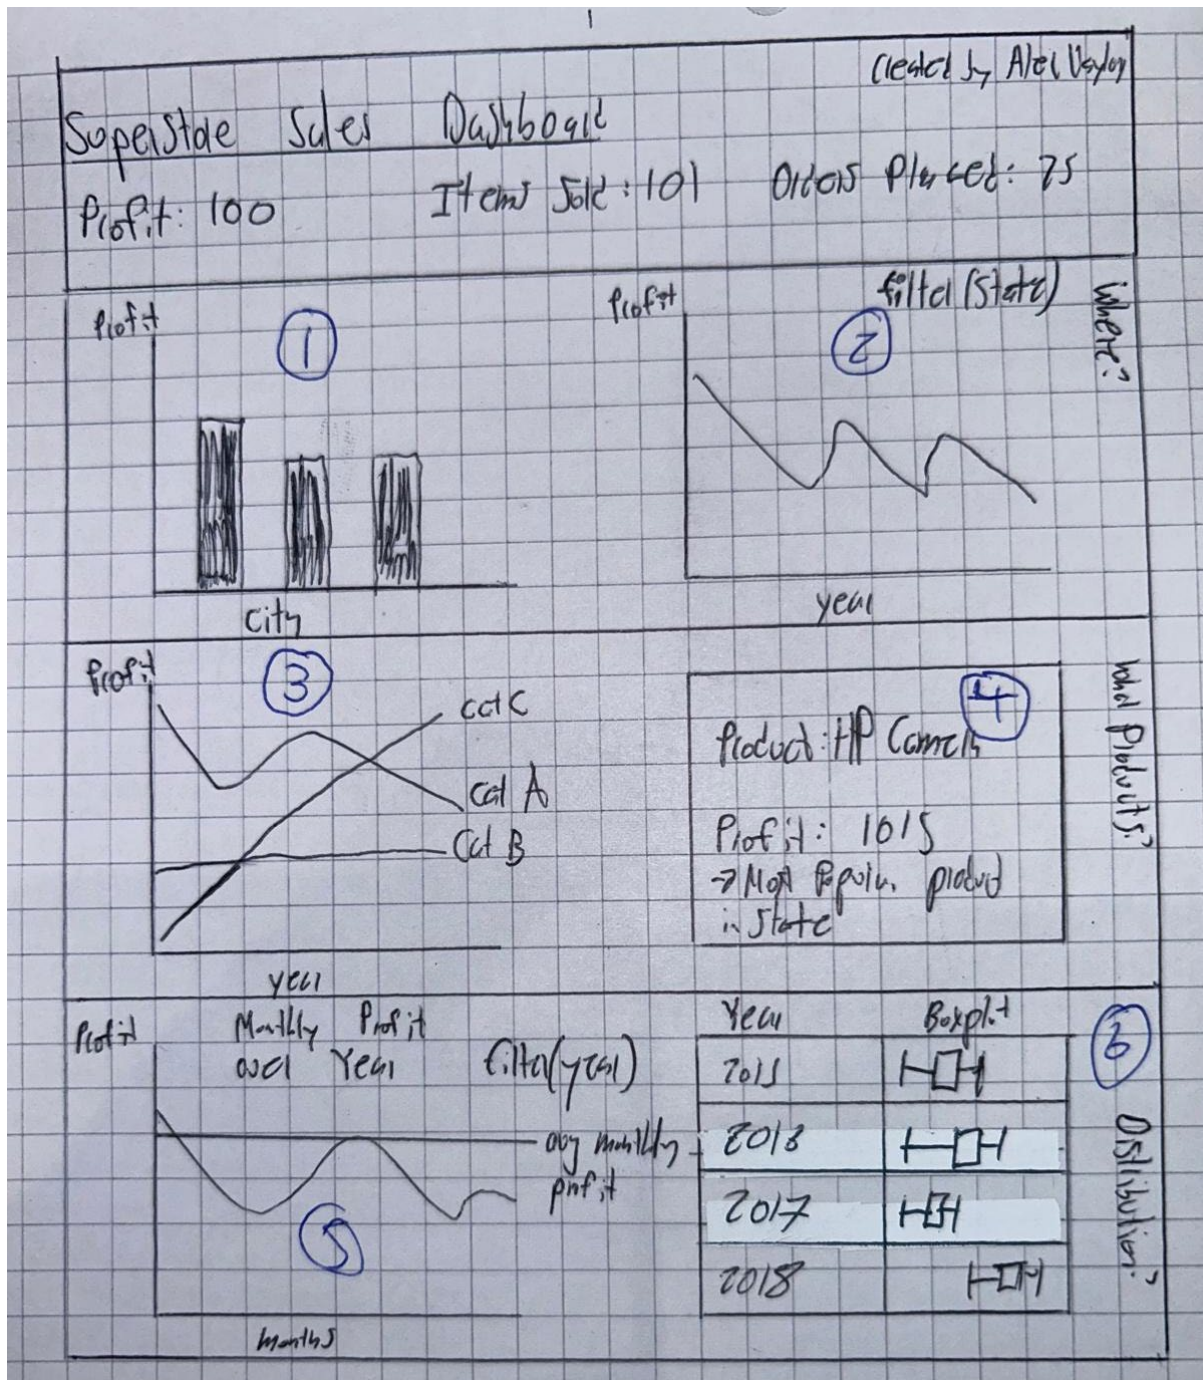 Created by Alex
Superstore Sales Dashboard
Profit: 100 Items Sold: 101 Orders Placed: 25
Profit
1
City
Profit
filter (State)
2
year
Where?
Profit
3
cat C
cat A
Cat B
year
4
Product: HP
Profit: 1015
→ Most Popular product
in State
What Products?
Profit
Monthly Profit
over Year
filter(year)
avg monthly
profit
5
months
Year Boxplot
2015
2016
2017
2018
6
Distribution?